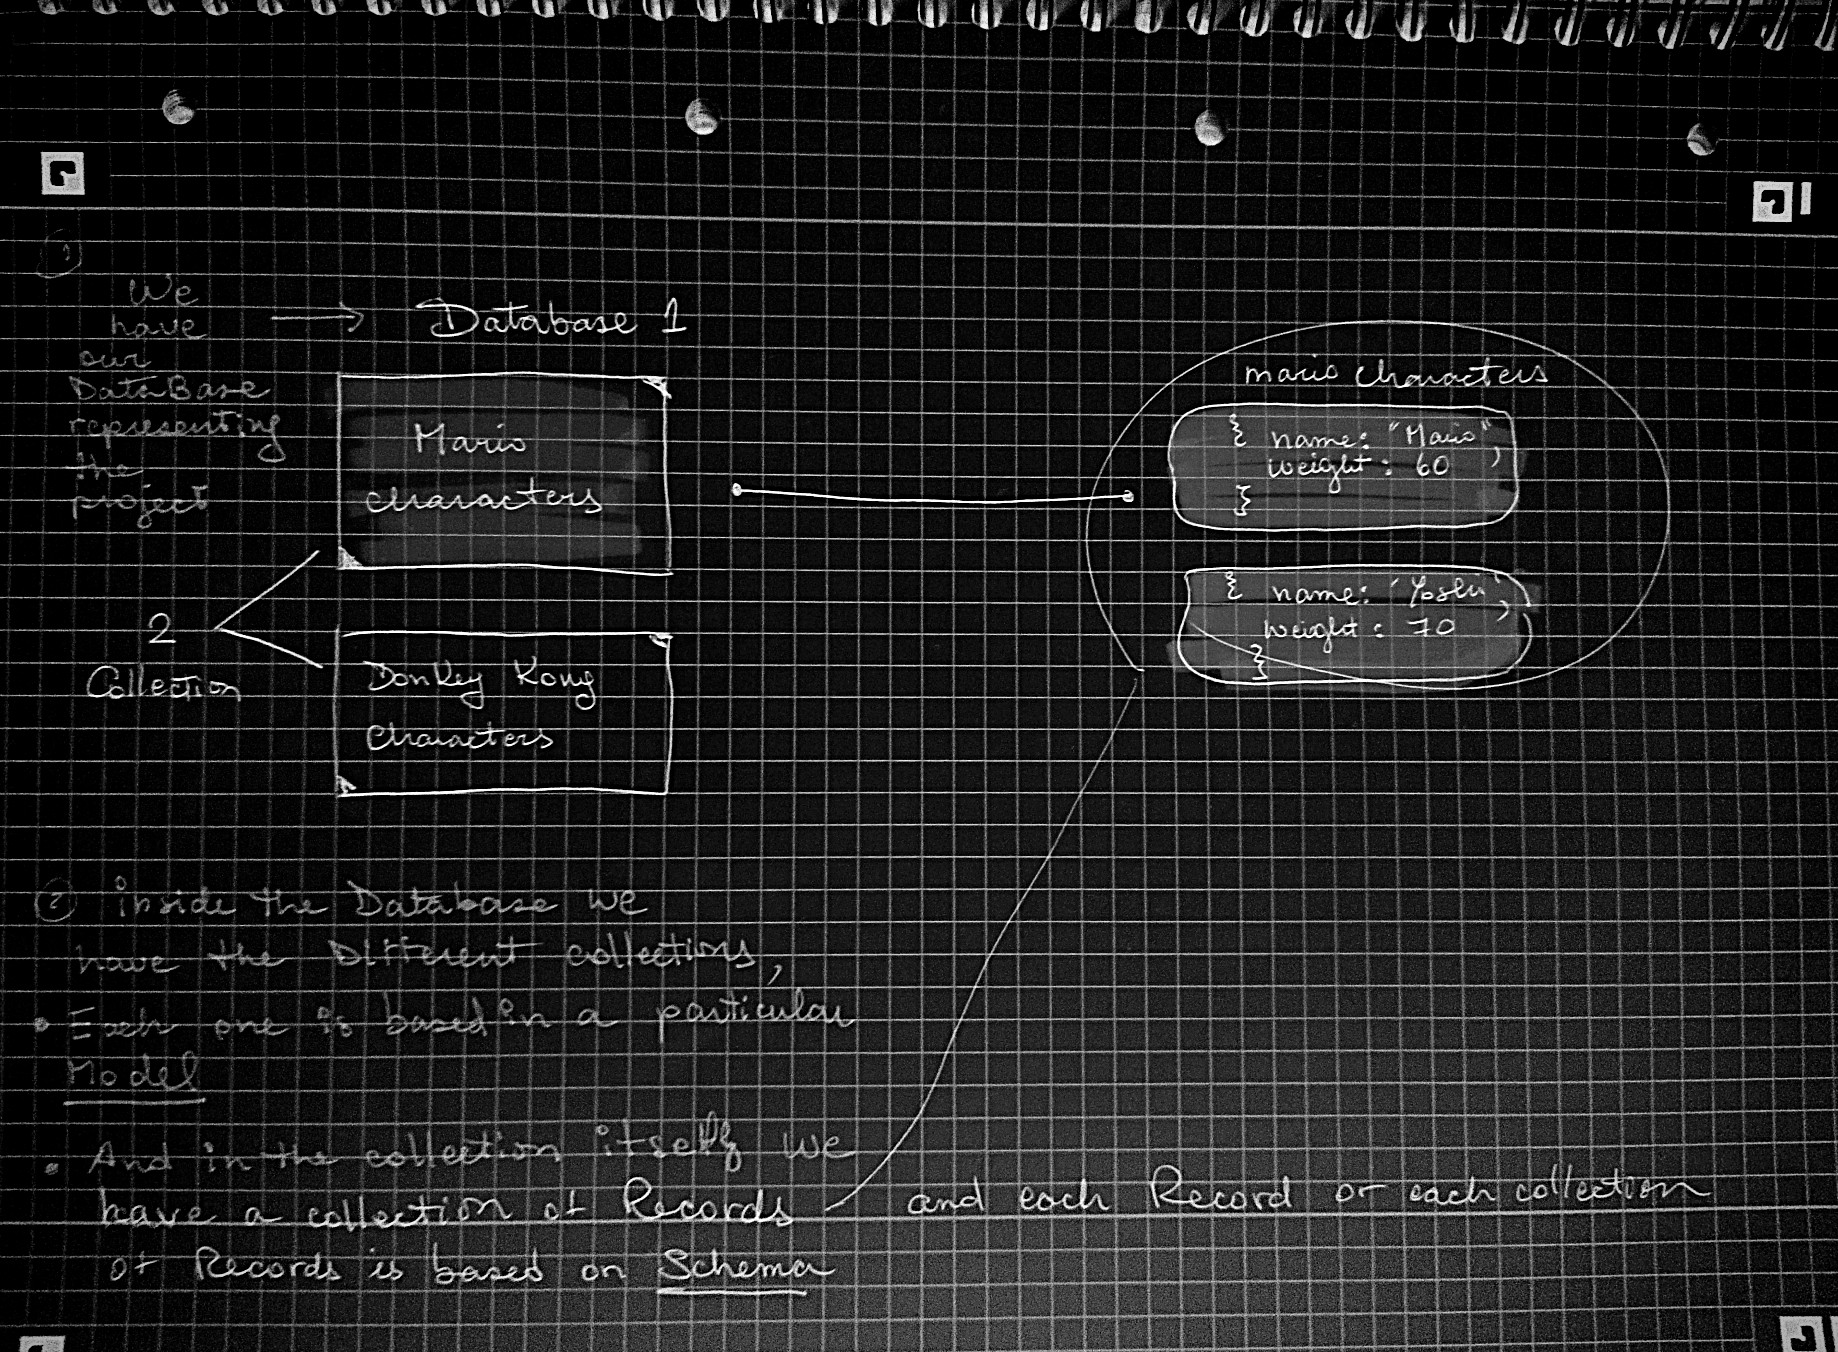 1
We
have
our
DataBase
representing
the
project
Database 1
Mario
characters
2
Collection
Donkey Kong
Characters
mario characters
{ name: "Mario",
weight: 60
}
{ name: 'Yoshi',
weight: 70
}
2 inside the Database we
have the Different collections,
• Each one is based in a particular
Model
• And in the collection itself we
have a collection of Records and each Record or each collection
of Records is based on Schema